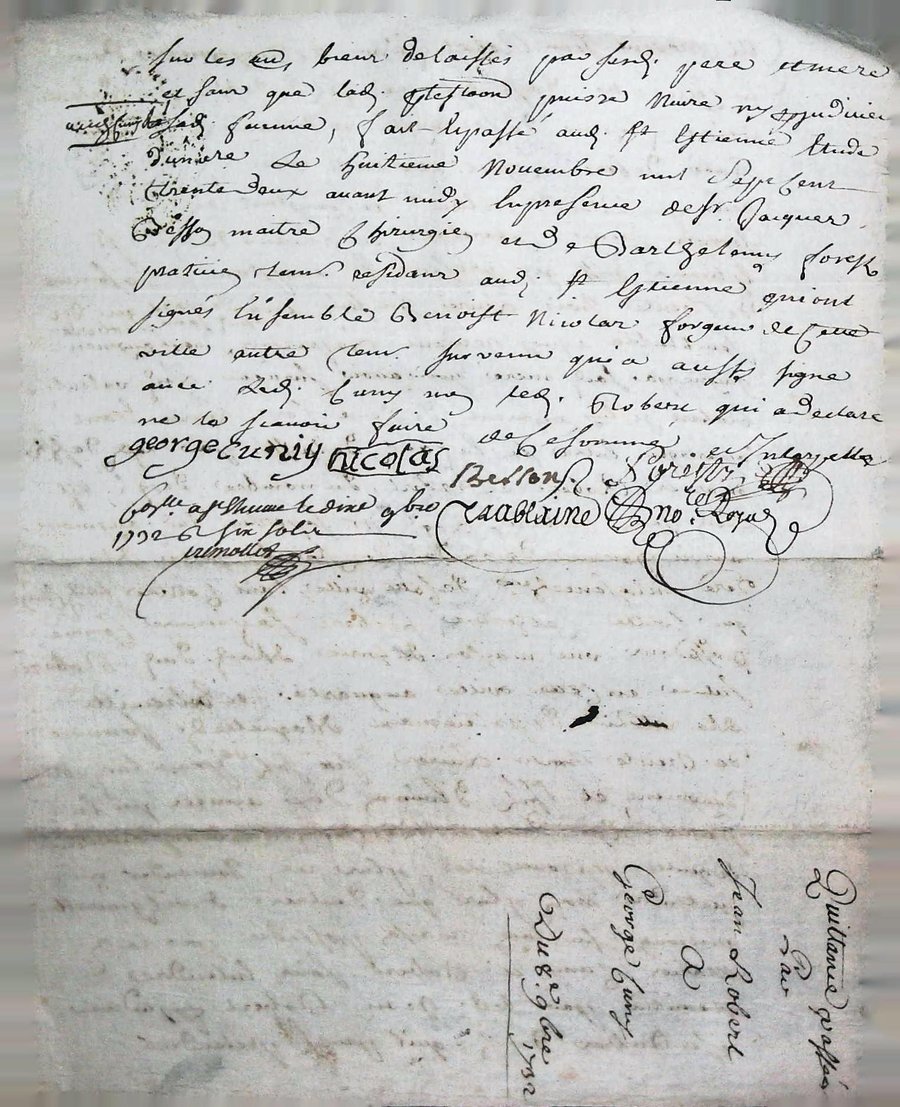 sur les biens delaissés par sesd. pere et mere
et sans que lad. puisse Nuire ny prejudicier
a sad. femme, fait et passé aud. st Estienne Etude
le huitieme Novembre mil sept cent
trente deux avant midy en presence de sr. Jacques
Besson maitre Chirurgien et de Barthelemy forest
praticien tem. residans aud. st Estienne qui ont
signés Ensemble Benoist Nicolas forgeur de Cette
ville autre tem. survenu qui a aussy signe
avec led. Cuny non led. Robert qui a declare
ne le scavoir faire de Ce sommé et Interpelle
george cuniy nicolas
Besson forest
le dixe 9bre
1732
No. Royal
Quittance passée
Par
Jean Robert
A
George Cuny
Du 8e. 9bre 1732